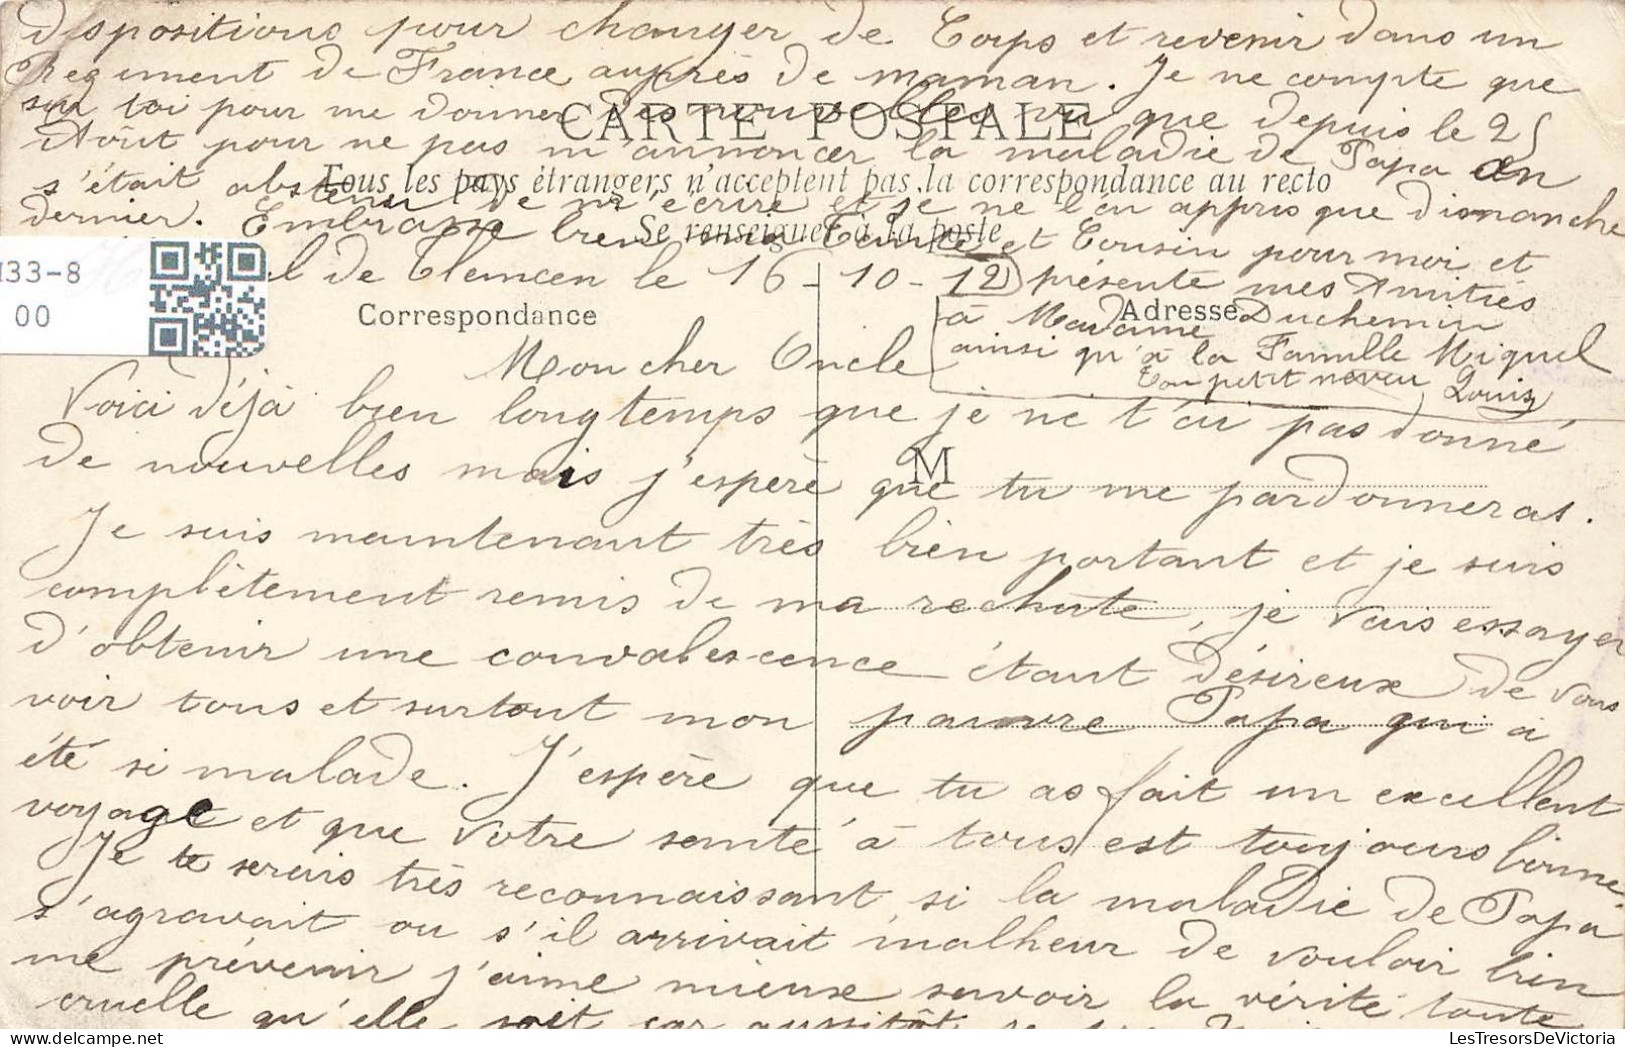 dispositions pour changer de Corps et revenir dans un
Régiment de France auprès de maman. Je ne compte que
sur toi pour me donner des nouvelles vu que depuis le 25
CARTE POSTALE
Août pour ne pas m'annoncer la maladie de Papa on
Tous les pays étrangers n'acceptent pas la correspondance au recto
s'était abstenu de m'écrire et je ne l'ai appris que dimanche
Se renseigner à la poste
dernier. Embrasse bien ma Tante et Cousin pour moi et
présente mes Amitiés
à Madame Duchemin
ainsi qu'à la Famille Miquel
Ton petit neveu Louis
133-8
00
l de Tlemcen le 16-10-12
Correspondance
Adresse
Mon cher Oncle
Voici déjà bien longtemps que je ne t'ai pas donné
de nouvelles mais j'espère que tu me pardonneras.
M
Je suis maintenant très bien portant et je suis
complètement remis de ma rechute, je vais essayer
d'obtenir une convalescence étant désireux de vous
voir tous et surtout mon pauvre Papa qui à
été si malade. J'espère que tu as fait un excellent
voyage et que votre santé à tous est toujours bonne
Je te serais très reconnaissant si la maladie de Papa
s'agravait ou s'il arrivait malheur de vouloir bien
me prévenir j'aime mieux savoir la vérité toute
cruelle qu'elle soit car aussitôt je
LesTresorsDeVictoria.com